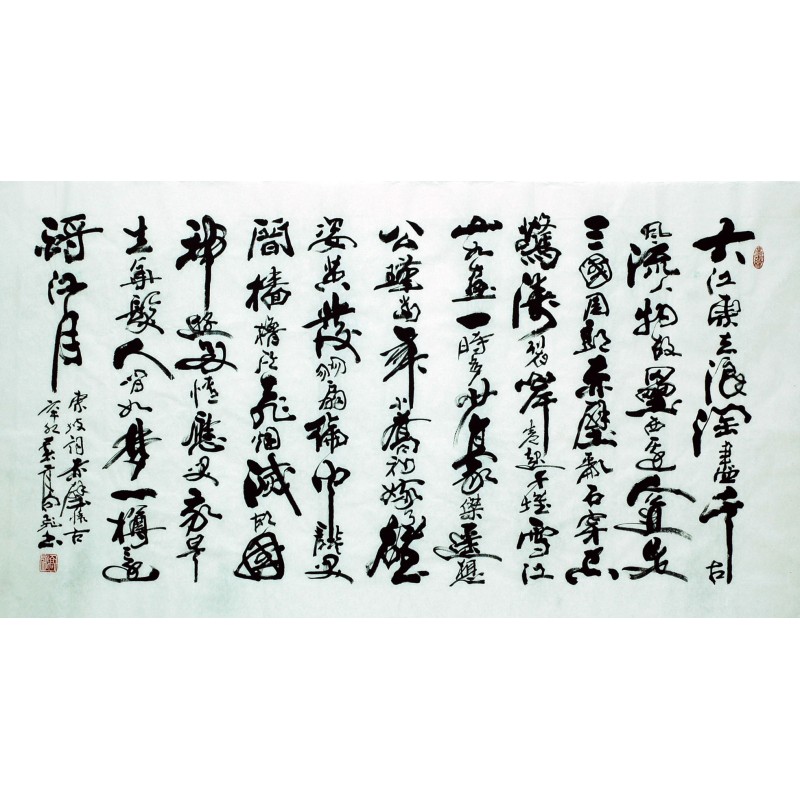 大江東去浪淘盡千古
風流人物故壘西邊人道是
三國周郎赤壁亂石穿空
驚濤裂岸卷起千堆雪江
山如畫一時多少豪傑遥想
公瑾當年小喬初嫁了雄
姿英發羽扇綸巾談笑
間檣櫓灰飛烟滅故國
神遊多情應笑我早
生華髮人間如夢一樽還
酹江月
東坡詞赤壁懷古
書